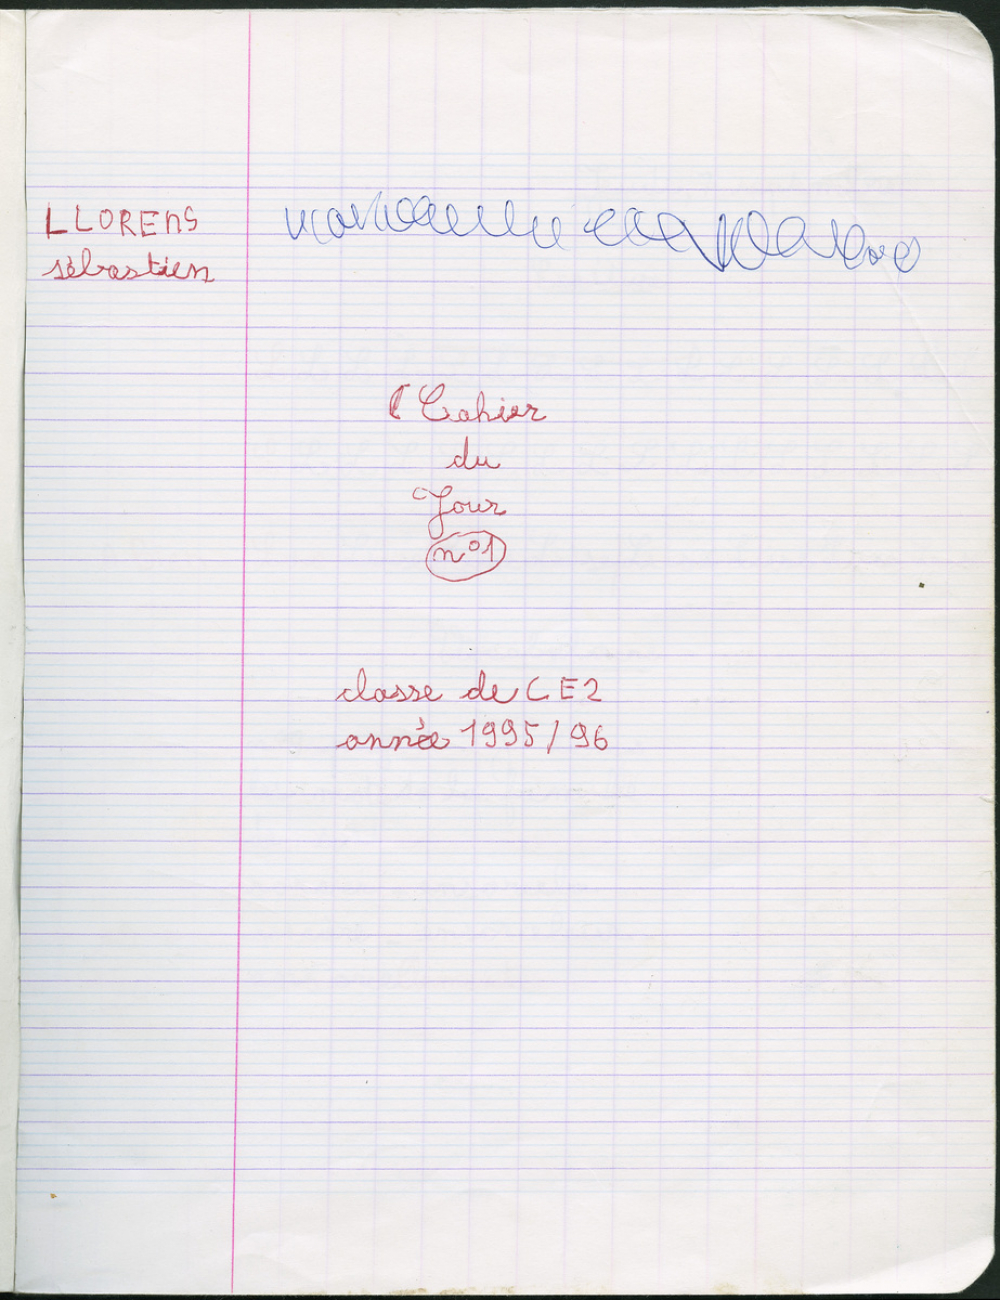 LLORENS
sébastien
Cahier
du
Jour
n°1
classe de CE2
année 1995/96